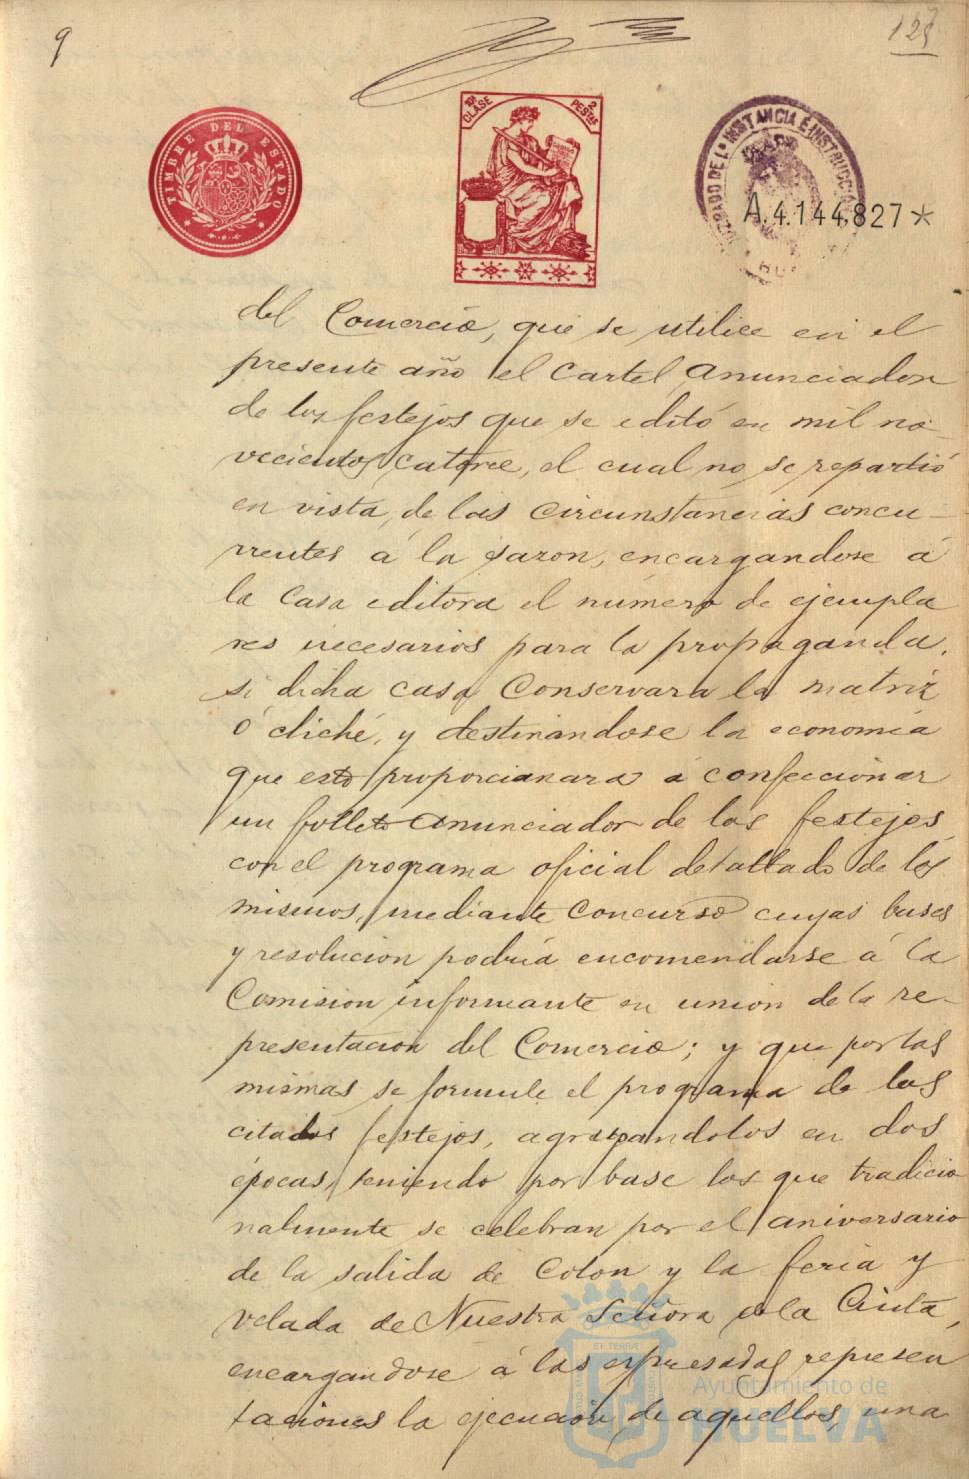 9
127
TIMBRE DEL ESTADO
10ª CLASE
2 PESTAS
JUZGADO DE 1ª INSTANCIA É INSTRUCCIÓN
A.4.144,827*
HU
del Comercio, que se utilice en el
presente año el Cartel Anunciador
de los festejos que se editó en mil no-
vecientos catorce, el cual no se repartió
en vista, de las circunstancias concu-
rrentes á la sazon, encargandose á
la Casa editora el número de ejempla
res necesarios para la propaganda,
si dicha casa Conservara la matriz
ó cliché, y destinándose la economía
que esto proporcionara á confeccionar
un folleto anunciador de los festejos,
con el programa oficial detallado de los
mismos, mediante Concurso cuyas bases
y resolucion podría encomendarse á la
Comision informante en unión de la re-
presentacion del Comercio; y que por las
mismas se formule el programa de los
citados festejos, agrupandolos en dos
épocas, teniendo por base los que tradicio
nalmente se celebran por el aniversario
de la salida de Colon y la feria y
velada de Nuestra Señora de la Cinta,
encargandose á las expresadas represen
taciones la ejecución de aquellos, una
Ayuntamiento de
HUELVA